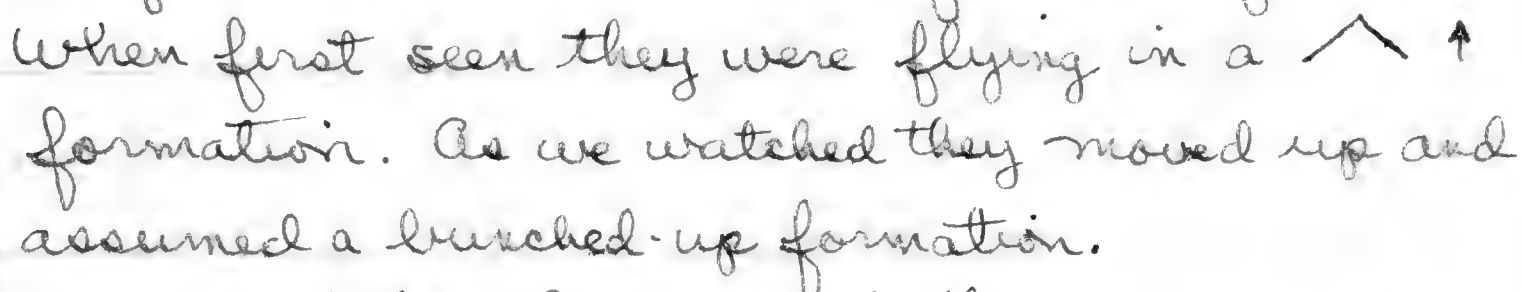 When first seen they were flying in a ∧ ↑
formation. As we watched they moved up and
assumed a bunched-up formation.